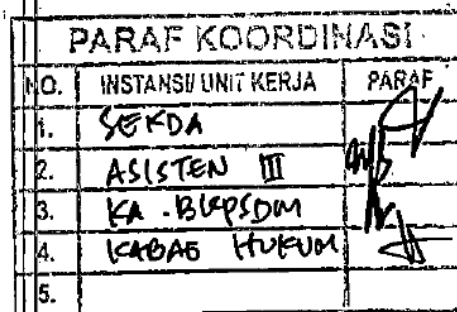 PARAF KOORDINASI
NO. INSTANSI/ UNIT KERJA PARAF
1. SEKDA
2. ASISTEN III
3. KA . BKPSDM
4. KABAG HUKUM
5.